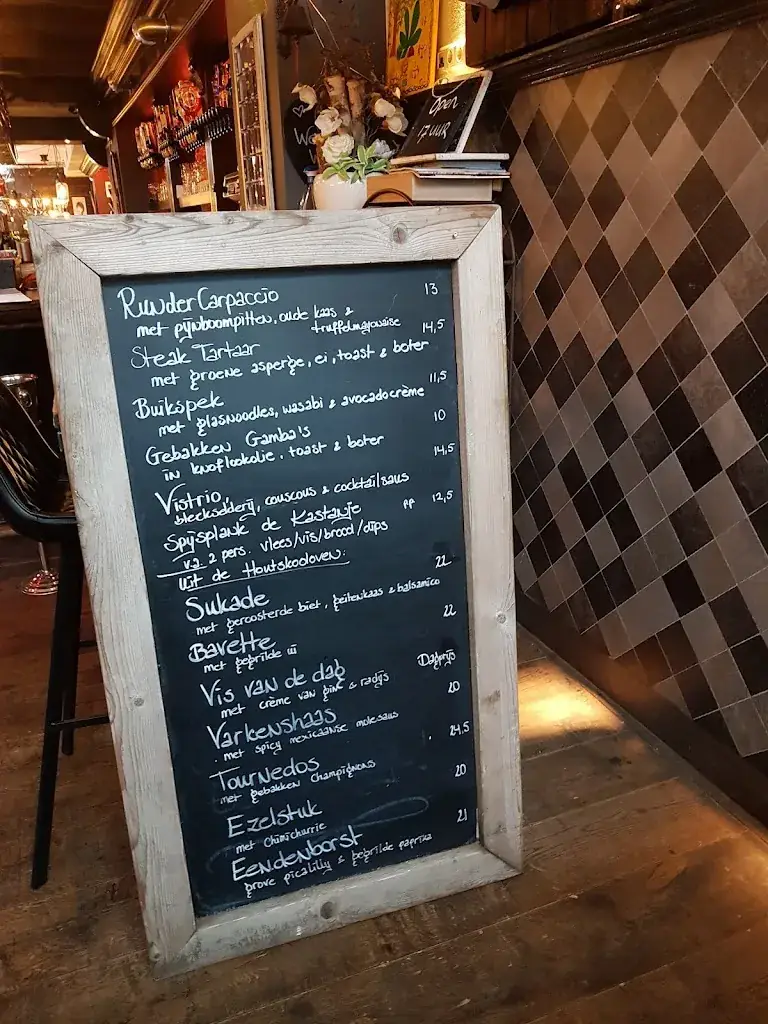 Open
17 UUR
RunderCarpaccio 13
met pijnboompitten, oude kaas &
truffelmayonaise
Steak Tartaar 14,5
met groene asperge, ei, toast & boter
Buikspek 11,5
met glasnoodles, wasabi & avocadocrème
Gebakken Gamba's 10
in knoflookolie, toast & boter
Vistrio, 14,5
couscous & cocktailsaus
Spijsplank de Kastanje pp 12,5
va 2 pers. vlees/vis/brood/dips
Uit de Houtskooloven:
Sukade 22
met geroosterde biet, geitenkaas & balsamico
Bavette 22
met gegrilde ui
Vis van de dag Dagprijs
met crème van & radijs
Varkenshaas 20
met spicy mexicaanse molesaus
Tournedos 24,5
met gebakken champignons
Ezelstuk 20
met Chimichurrie
Eendenborst 21
grove picalilly & gegrilde paprika